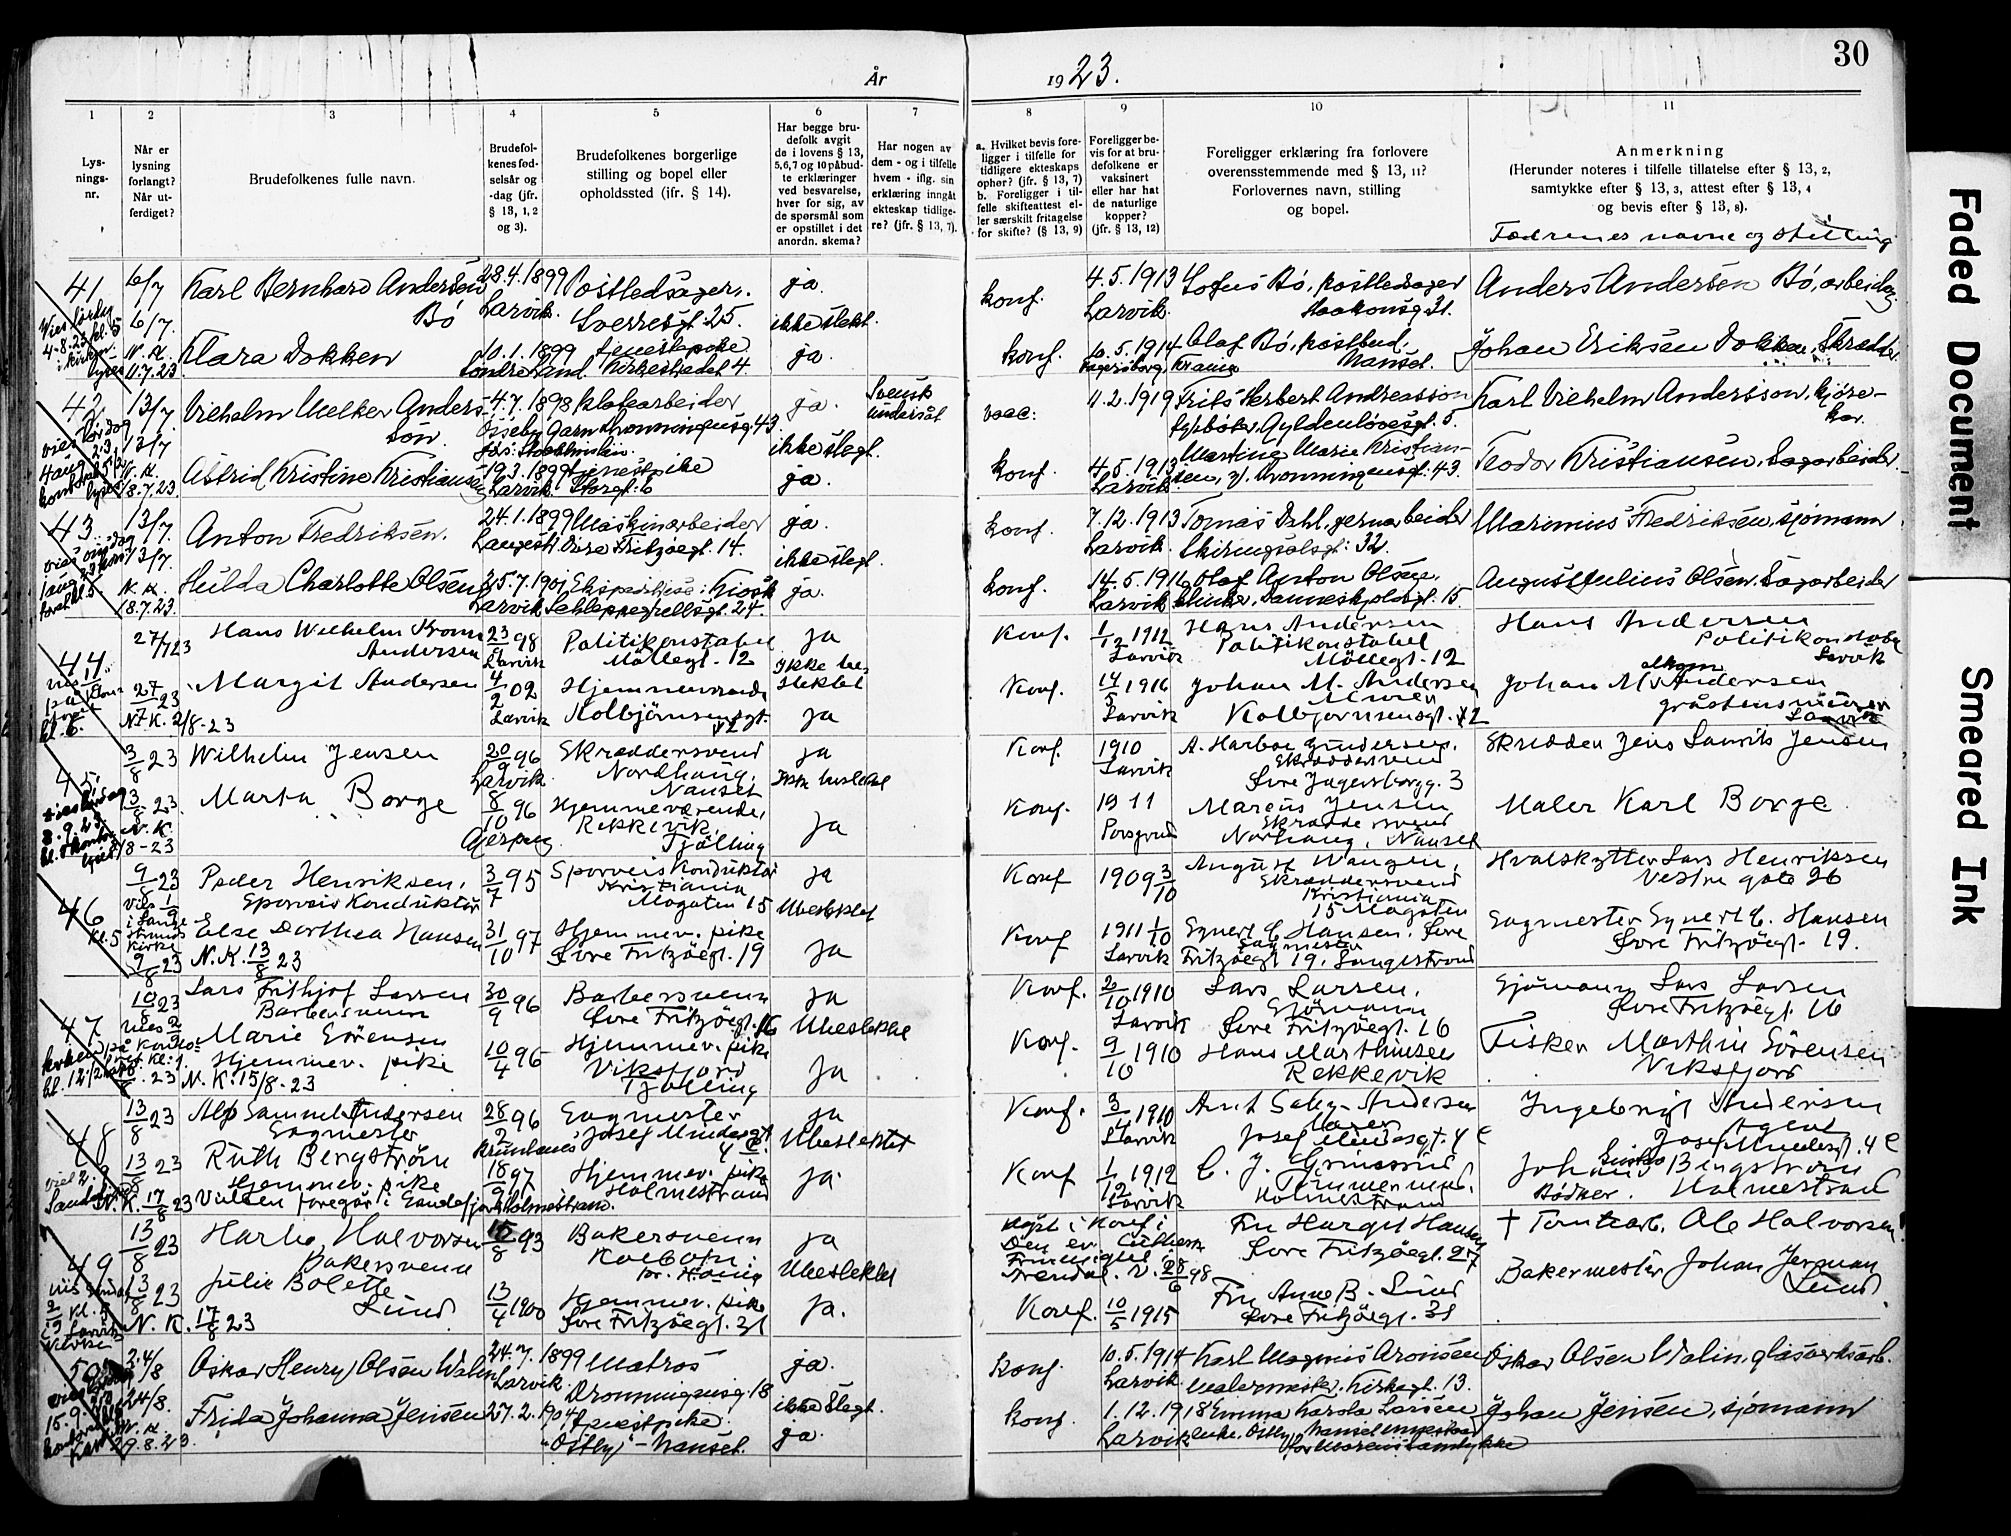 30
År
1923.
1
2
3
4
5
6
7
8
9
10
11
Lys-
nings-
nr.
Når er
lysning
forlangt?
Når ut-
ferdiget?
Brudefolkenes fulle navn.
Brudefol-
kenes fød-
selsår og
-dag (jfr.
§ 13, 1, 2
og 3).
Brudefolkenes borgerlige
stilling og bopel eller
opholdssted (ifr. § 14).
Har begge bru-
defolk avgit
de i lovens § 13,
5,6,7 og 10 påbud-
te erklæringer
ved besvarelse,
hver for sig, av
de spørsmål som
er opstillet i det
anordn. skema?
Har nogen av
dem - og i tilfelle
hvem - iflg. sin
erklæring inngåt
ekteskap tidlige-
re? (jfr. § 13, 7).
a. Hvilket bevis fore-
ligger i tilfelle for
tidligere ekteskaps
ophør? (jfr. § 13, 7)
b. Foreligger i til-
felle skifteattest el-
ler særskilt fritagelse
for skifte? (§ 13, 9)
Foreligger be-
vis for at bru-
defolkene er
vaksinert
eller har hat
de naturlige
kopper?
(jfr. § 13, 12)
Foreligger erklæring fra forlovere
overensstemmende med § 13, 11?
Forlovernes navn, stilling
og bopel.
Anmerkning
(Herunder noteres i tilfelle tillatelse efter § 13, 2,
samtykke efter § 13, 3, attest efter § 13, 4
og bevis efter § 13, 8).
Fædrenes navne og stilling
41
6/7
Karl Bernhard Andersen
Bö
28.4.1899
Larvik.
Postledsager,
Sverresgt. 25.
ja.
ikke slekt.
konf.
4.5.1913
Larvik
Sofus Bö, postledsager
Haakonsg. 31.
Anders Andersen Bö, arbeider
6/7.
N.K.
11.7.23
Klara Dokken
10.1.1899
Söndre Land
Tjenestepike
Kirkestredet 4.
ja.
konf.
10.5.1914
Olaf Bö, postbud,
Nanset.
Johan Eriksen Dokken, Skredder
42
13/7
Vilhelm Melker Anders-
son.
4.7.1898
Platearbeider
Dronningensg. 43
ja.
ikke slegt.
Svensk
undersåt
vacc:
11.2.1919
Frits Herbert Andreasson
fyrböter, Gyldenlövesgt. 5.
Karl Vilhelm Andersson, kjöre-
kar.
13/7
N.K.
18.7.23
Astrid Kristine Kristiansen
19.3.1899
Larvik
Tjenestpike
Storgt. 6
ja.
konf.
4.5.1913
Larvik
Martine Marie Kristian-
sen, Dronningensgt. 43.
Teodor Kristiansen, Sagarbeider.
43.
13/7
Anton Fredriksen.
24.1.1899
Langestr.
Maskinarbeider
Övre Fritzöegt. 14.
ja.
ikke slegt.
konf.
7.12.1913
Larvik.
Tomas Dahl, jernarbeider
Skiringssalsgt. 32.
Marinius Fredriksen, sjömann
13/7.
N.K.
18.7.23.
Hulda Charlotte Olsen
25.7.1901
Larvik
Ekspeditrise i Kiosk
Schleppegrellsgt. 24.
ja.
konf.
14.5.1916
Larvik
Olaf Anton Olsen,
Danneskjoldsgt. 15.
August Julius Olsen, Sagarbeider
44.
27/7 23
Hans Wilhelm Kromm
Andersen
23/9 98
Larvik
Politikonstabel
Möllegt. 12
Ja
Ikke be-
slektet
Konf.
1/12 1912
Larvik
Hans Andersen
Politikonstabel
Möllegt. 12
Hans Andersen
Politikonstabel
Larvik
27/7 23
N.K. 2/8-23
Margit Andersen
4/2 02
Larvik
Hjemmeværende
Kolbjörnsensgt.
12
Ja
Konf.
14/5 1916
Larvik
Johan M. Andersen
Murer
Kolbjornsensgt. 12
Johan M. Andersen
gråstensmurer
Larvik
45.
3/8 23
Wilhelm Jensen
20/9 96
Larvik.
Skræddersvend
Nordhaug,
Nanset
Ja
Ikke beslektet
Konf.
1910
Larvik
A. Harboe Gundersen,
Skræddersvend
Övre Jegersborgg. 3
Skredder Jens Laurits Jensen
3/8 23
N.K.
8/8-23
Marta Borge
8/10 96
Gjerpen
Hjemmeværende,
Rekkevik,
Tjölling
Ja
Konf.
1911
Porsgrund
Marcus Jensen
Skræddersvend
Norhaug, Nanset
Maler Karl Borge
46
9/8 23
Peder Henriksen,
Sporveiskonduktör
3/7 95
Sporveiskonduktör
Kristiania
Mogaten 15
Ja
Ubeslektet
Konf
1909 3/10
August Wangen,
Skræddersvend
Kristiania
15 Mogaten
Hvalskytter Lars Henriksen
Vestre gate 26
9/8 23
Else Dorthea Hansen
N.K. 13/8 23
31/10 97
Hjemmev. pike
Övre Fritzöegt. 19
Ja
Konf
1911 1/10
Larvik
Synert C. Hansen. Övre
Sagmester
Fritzöegt 19. Langestrand
Sagmester Synert C. Hansen
Övre Fritzöegt. 19.
47
10/8 23
Lars Frithjof Larsen
Barbersvenn
30/9 96
Barbersvenn
Övre Fritzöegt. 16
Ja
Ubeslektet
Konf.
2/10 1910
Larvik
Lars Larsen,
Sjömann
Övre Fritzöegt. 16
Sjömann Lars Larsen
Övre Fritzöegt. 16
Marie Sörensen
Hjemmev. pike
N.K. 15/8-23
10/4 96
Hjemmev. pike
Viksfjord
Tjölling
Ja
Konf.
9/10 1910
Hans Marthinsen
Rekkevik
Fisker Marthin Sörensen
Viksfjord
48
13/8 23
Alf Samuel Andersen
Sagmester
28/2 96
Sagmester
Josef Mindesgt
4 c.
Ja
Ubeslektet
Konf.
3/4 1910
Larvik
Josef Mindesgt. 4 c
Ingebrigt Andersen
Agent
Josef Mindesgt. 4 c
13/8 23
N.K. 17/8 23
Ruth Bergström
Hjemmev. pike
Vielsen foregår i Sandefjord
18/9 97
Holmestrand.
Hjemmev. pike
Holmestrand
ja
Konf
1/12 1912
Larvik
Tömmermand.
Holmestrand
Johans Bergström
Bödker. Holmestrand
49
13/8 23
Halvorsen
Bakersvenn
15/8 93
Bakersvenn
Kolbotn
Ja
Ubeslektet
Fru Margit Hansen
Övre Fritzöegt. 27
† Tomtearb. Ole Halvorsen
13/8 23
N.K. 17/8 23
Julie Bolette
Lund
13/4 1900
Hjemmev. pike
Övre Fritzöegt. 31
Ja.
Konf.
10/5 1915
Fru Anne B. Lund
Övre Fritzöegt. 31
Bakermester Johan Herman
Lund
50.
24/8
Oskar Henry Olsen Walin
24.7.1899
Larvik.
Matros
Dronningensg. 18
ja.
ikke slegt.
konf.
10.5.1914
Larvik
Karl Magnus Aronsen
Malermester, Kirkegt. 13.
Oskar Olsen Walin, glasverksarb.
24/8.
N.K.
29.8.23.
Frida Johanna Jensen
27.2.1904
Tjenestpike.
"Östby" - Nanset.
ja.
konf.
1.12.1918
Larvik
Emma Karola Larsen
enke, Östby, Nanset
Johan Jensen, sjömann
Faded Document
Smeared Ink